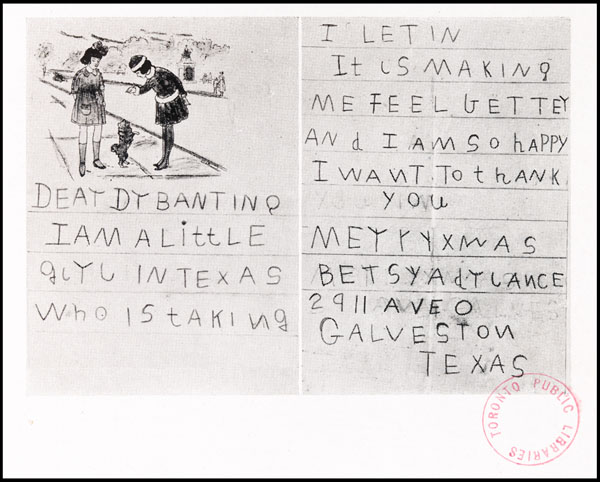 DEAr Dr BANTING
I AM A LittLE
girL IN TEXAS
Who IS tAKING
I LETIN
It iS MAKING
ME FEEL bETTEr
ANd I AM SO hAPPY
I WANT TO thANK
YOU
MErrY XMAS
BETSY AdrIANCE
2911 AVE O
GALVESTON
TEXAS
TORONTO PUBLIC LIBRARIES